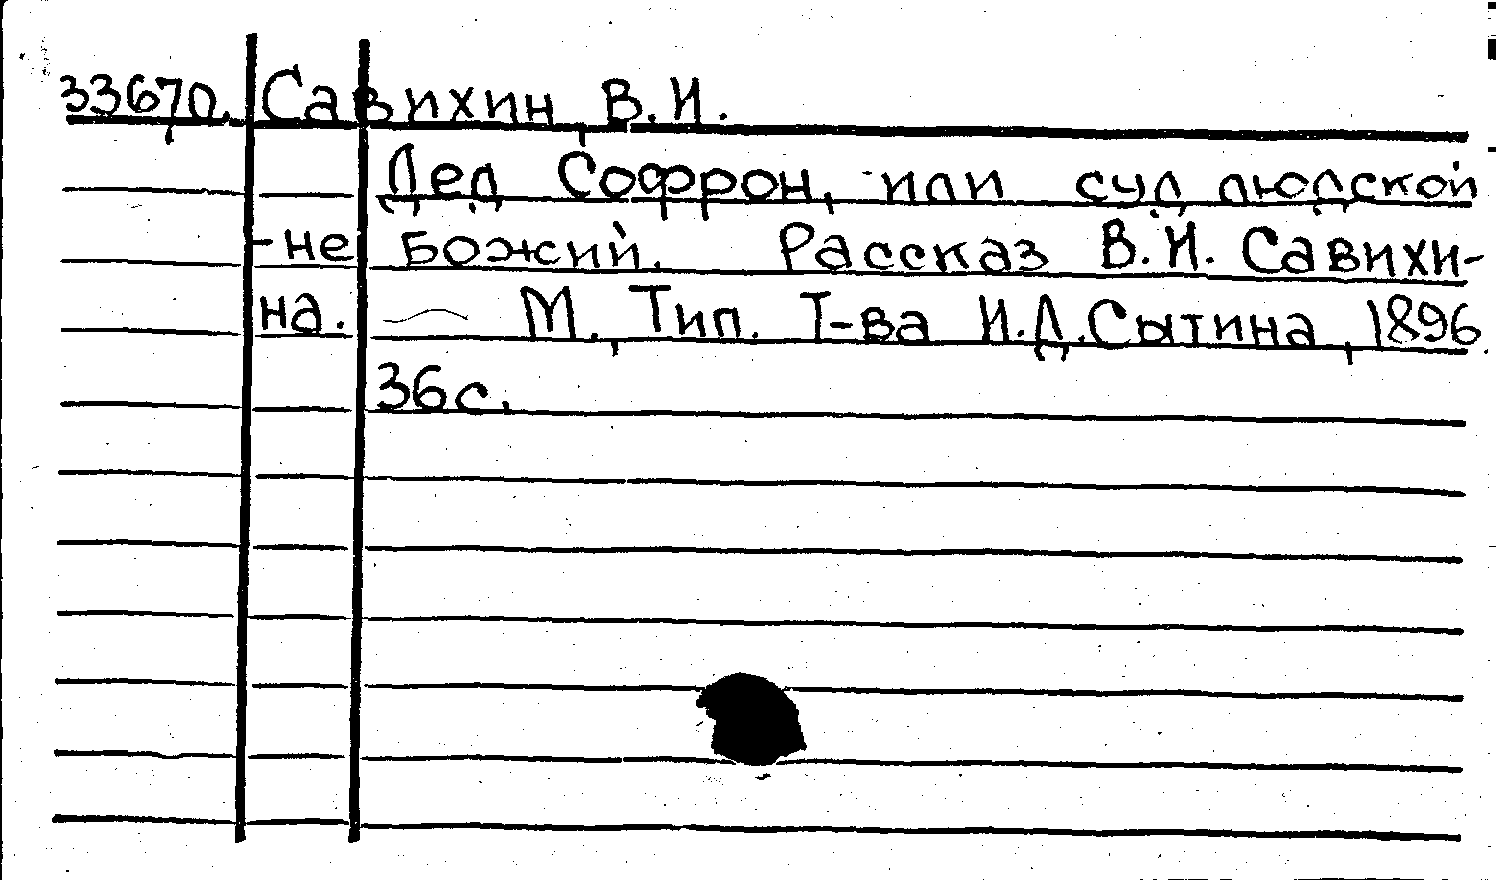 33670. Савихин, В.И.
Дед Софрон, или суд людской
-не Божий. Рассказ В.И. Савихи-
на. М., Тип. Т-ва И.Д.Сытина, 1896.
36с.